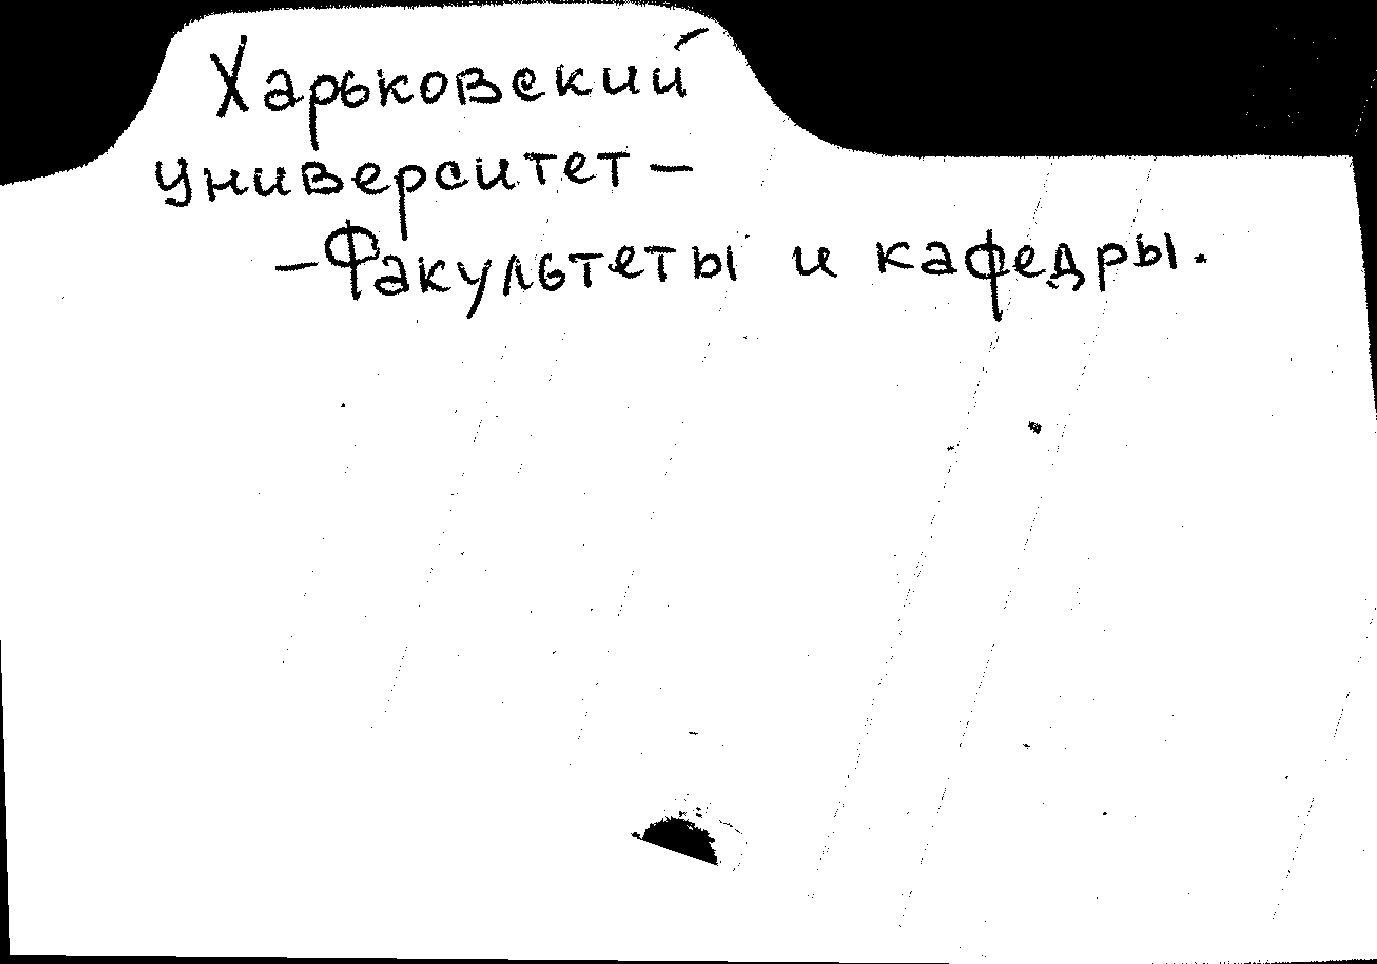 Харьковский
университет –
– Факультеты и кафедры.